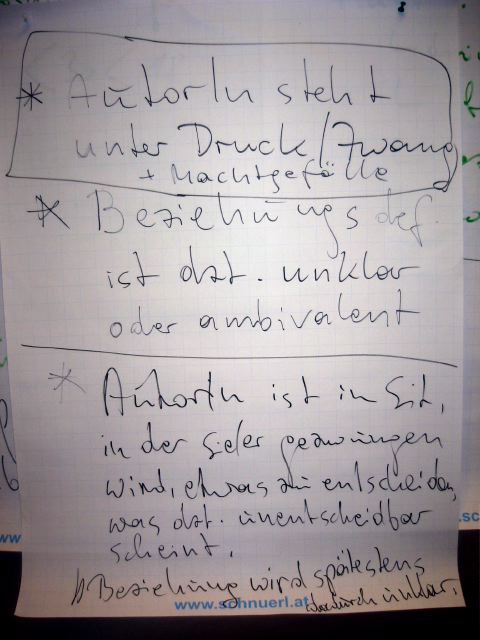 * AutorIn steht
unter Druck/Zwang
+ Machtgefälle
* Beziehungsdef.
ist dzt. unklar
oder ambivalent
* AutorIn ist in Sit,
in der sie/er gezwungen
wird, etwas zu entscheiden,
was dzt. unentscheidbar
scheint.
Beziehung wird spätestens
dadurch unklar.
www.schnuerl.at